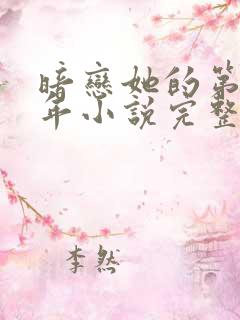 暗戀她的第
年小說完整
李然